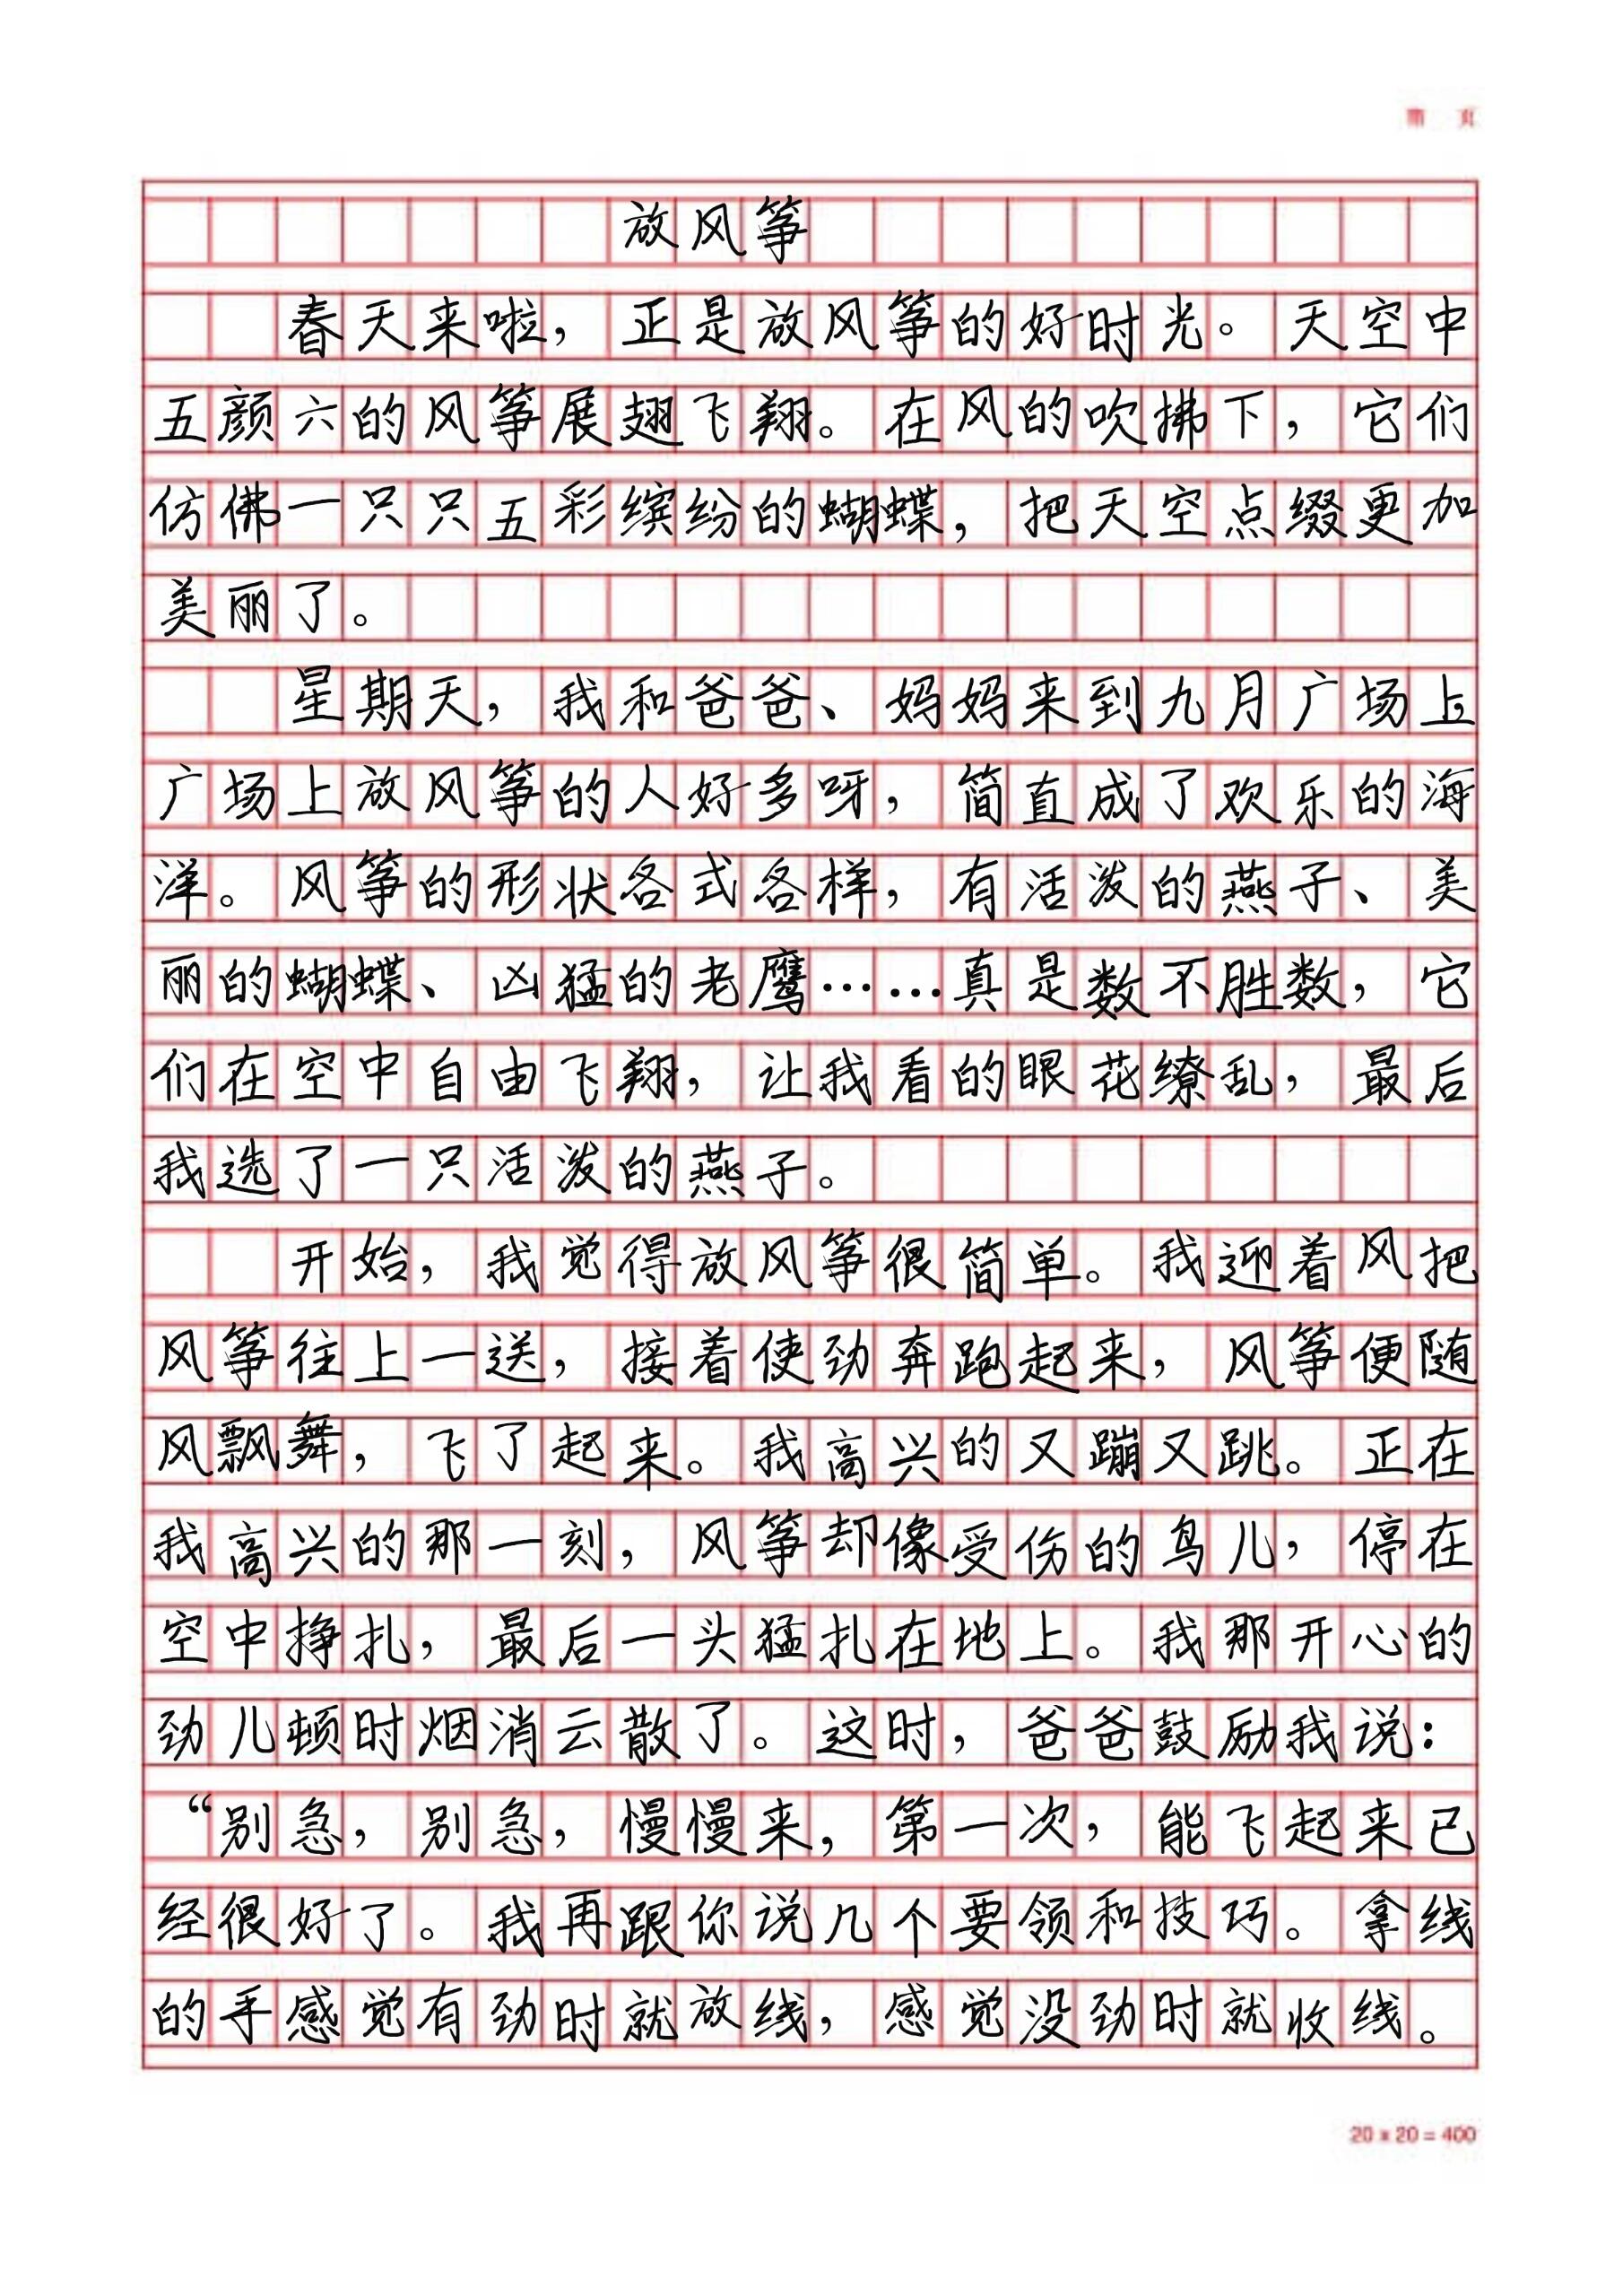 第 页
放风筝
春天来啦，正是放风筝的好时光。天空中
五颜六的风筝展翅飞翔。在风的吹拂下，它们
仿佛一只只五彩缤纷的蝴蝶，把天空点缀更加
美丽了。
星期天，我和爸爸、妈妈来到九月广场上，
广场上放风筝的人好多呀，简直成了欢乐的海
洋。风筝的形状各式各样，有活泼的燕子、美
丽的蝴蝶、凶猛的老鹰……真是数不胜数，它
们在空中自由飞翔，让我看的眼花缭乱，最后
我选了一只活泼的燕子。
开始，我觉得放风筝很简单。我迎着风把
风筝往上一送，接着使劲奔跑起来，风筝便随
风飘舞，飞了起来。我高兴的又蹦又跳。正在
我高兴的那一刻，风筝却像受伤的鸟儿，停在
空中挣扎，最后一头猛扎在地上。我那开心的
劲儿顿时烟消云散了。这时，爸爸鼓励我说：
“别急，别急，慢慢来，第一次，能飞起来已
经很好了。我再跟你说几个要领和技巧。拿线
的手感觉有劲时就放线，感觉没劲时就收线。
20 x 20 = 400